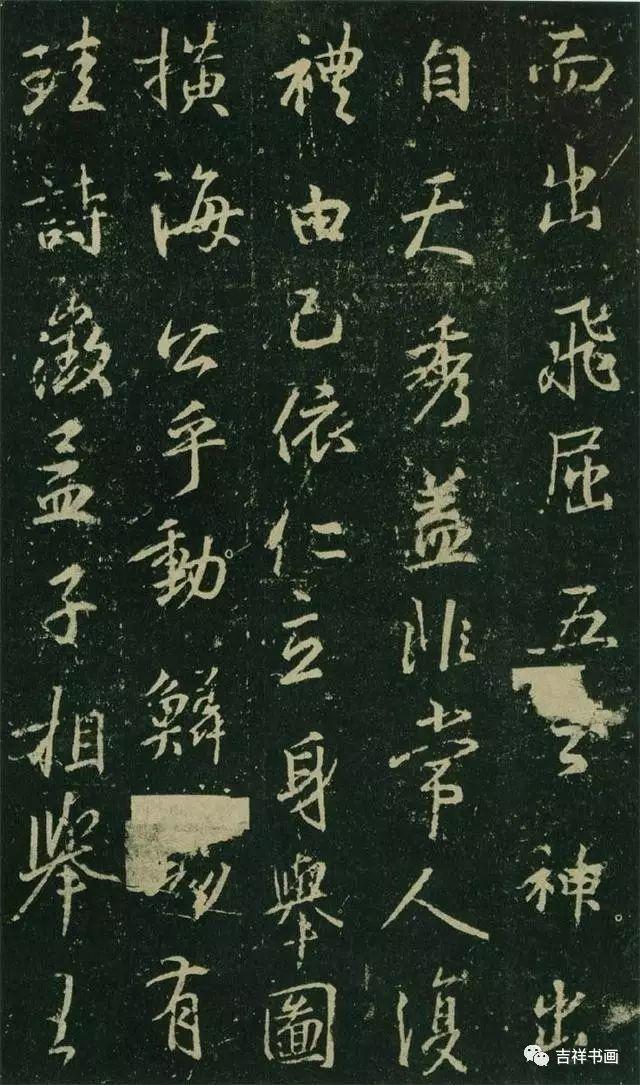 而出飛屈五神出
自天秀蓋非常人復
禮由己依仁立身舉圖
橫海公乎動鱗有
珪詩徵孟子相舉
吉祥书画